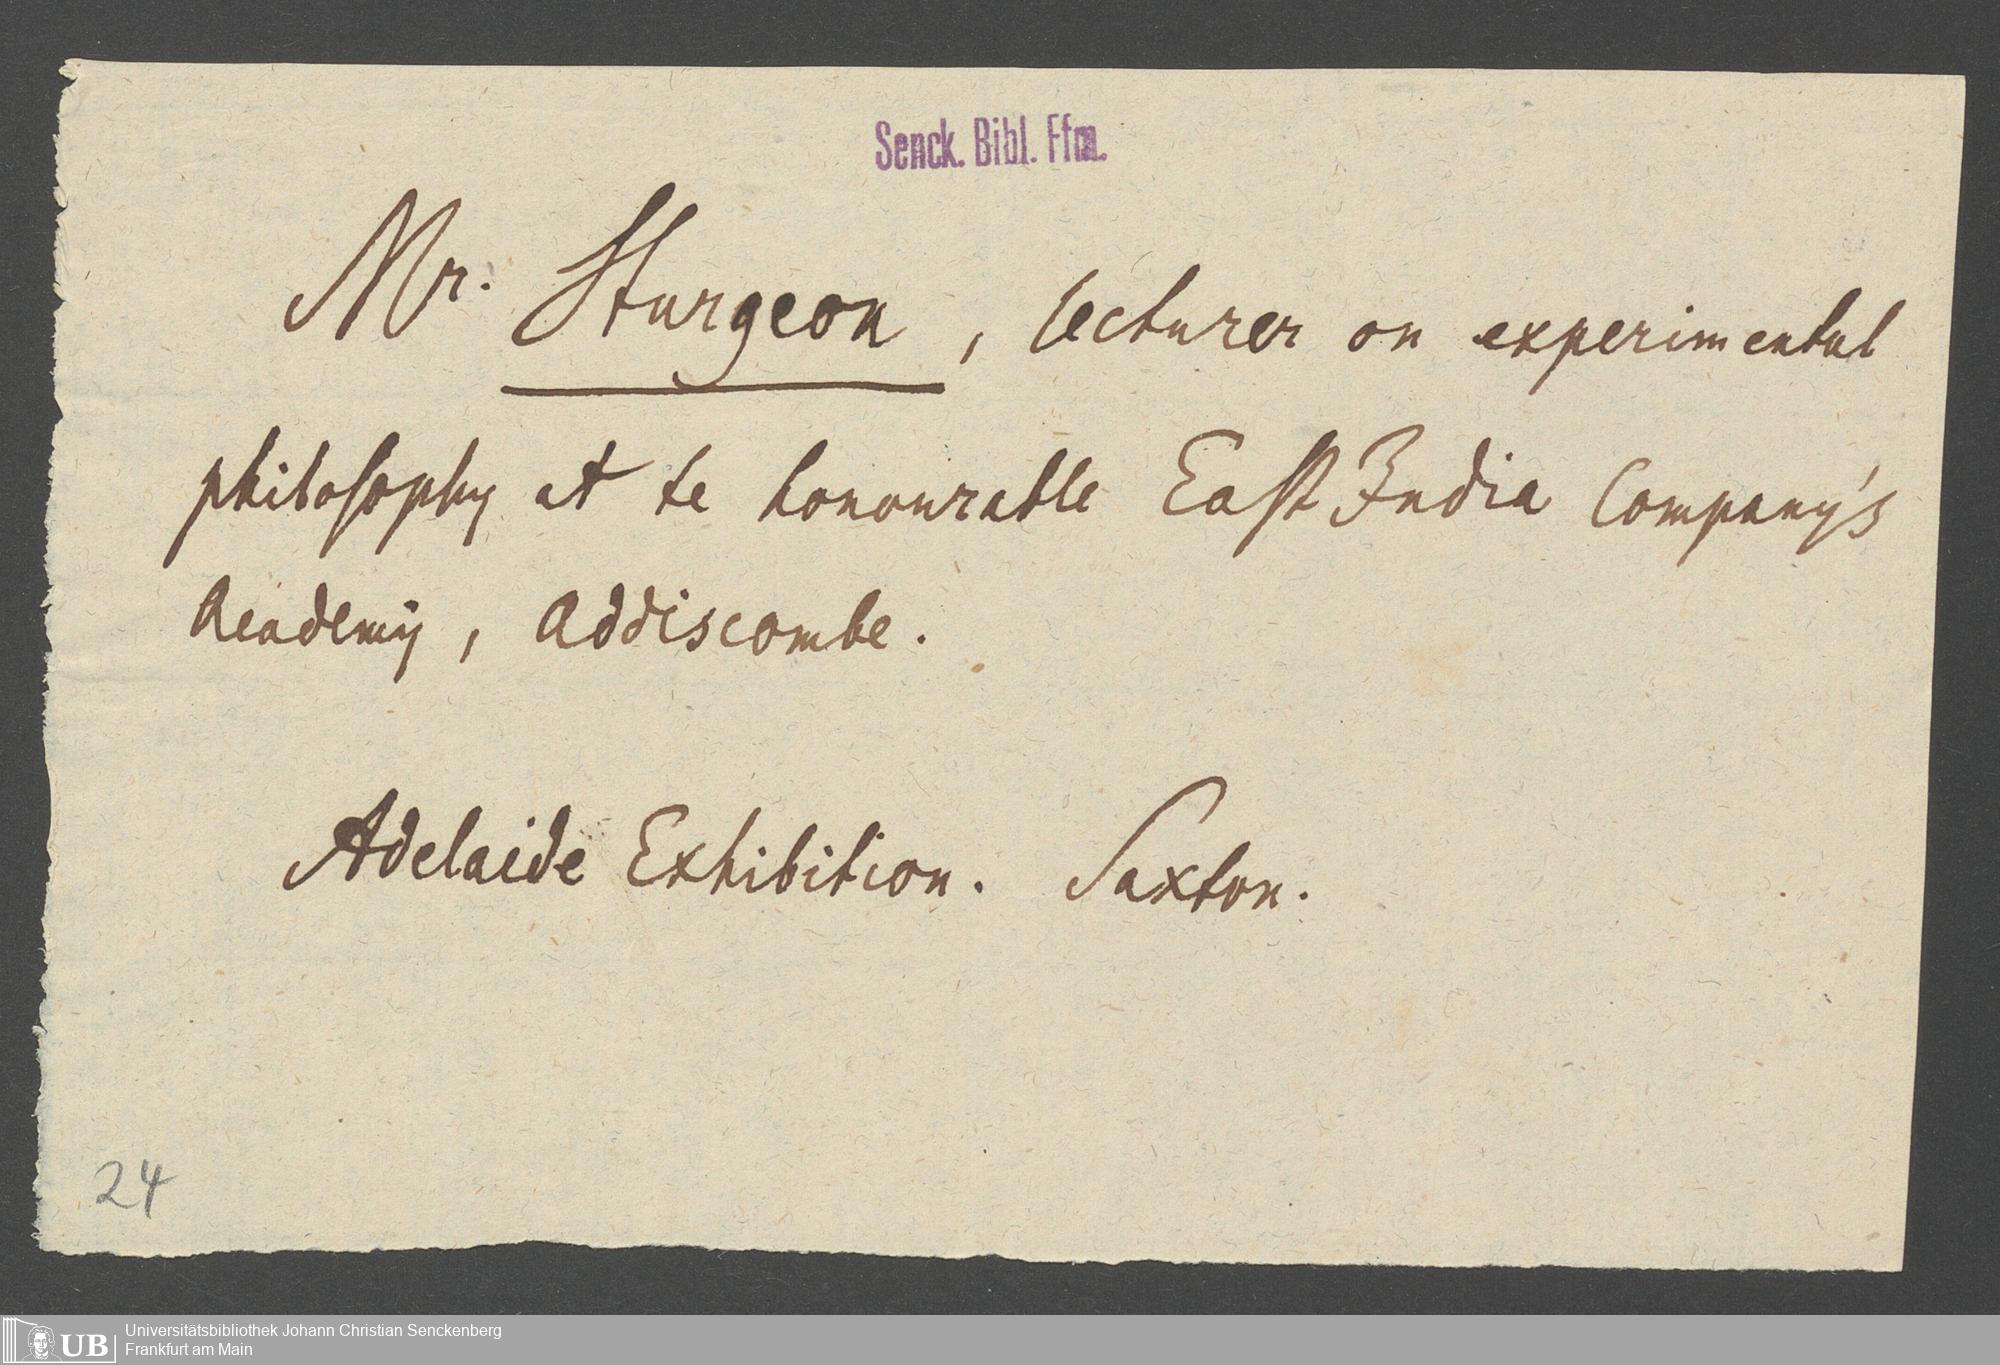 Senck. Bibl. Ffm.
Mr. Sturgeon, lecturer on experimental
philosophy at te honourable East India Company's
Academy, Addiscombe.
Adelaide Exhibition. Saxton.
24
UB
Universitätsbibliothek Johann Christian Senckenberg
Frankfurt am Main